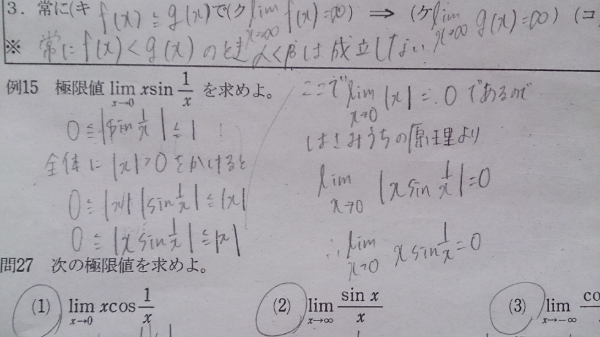 3. 常に(キ f(x) ≧ g(x)で(ク lim x→∞ f(x)=∞) ⇒ (ケ lim x→∞ g(x)=∞) (コ
※ 常に f(x) < g(x) のとき α<βは成立しない
例15 極限値 lim x→0 x sin 1/x を求めよ。
0 ≦ |sin 1/x| ≦ 1
全体に |x|>0 をかけると
0 ≦ |x| |sin 1/x| ≦ |x|
0 ≦ |x sin 1/x| ≦ |x|
ここで lim x→0 |x| = 0 であるので
はさみうちの原理より
lim x→0 |x sin 1/x| = 0
∴ lim x→0 x sin 1/x = 0
問27 次の極限値を求めよ。
(1) lim x→0 x cos 1/x (2) lim x→∞ sin x/x (3) lim x→-∞ co